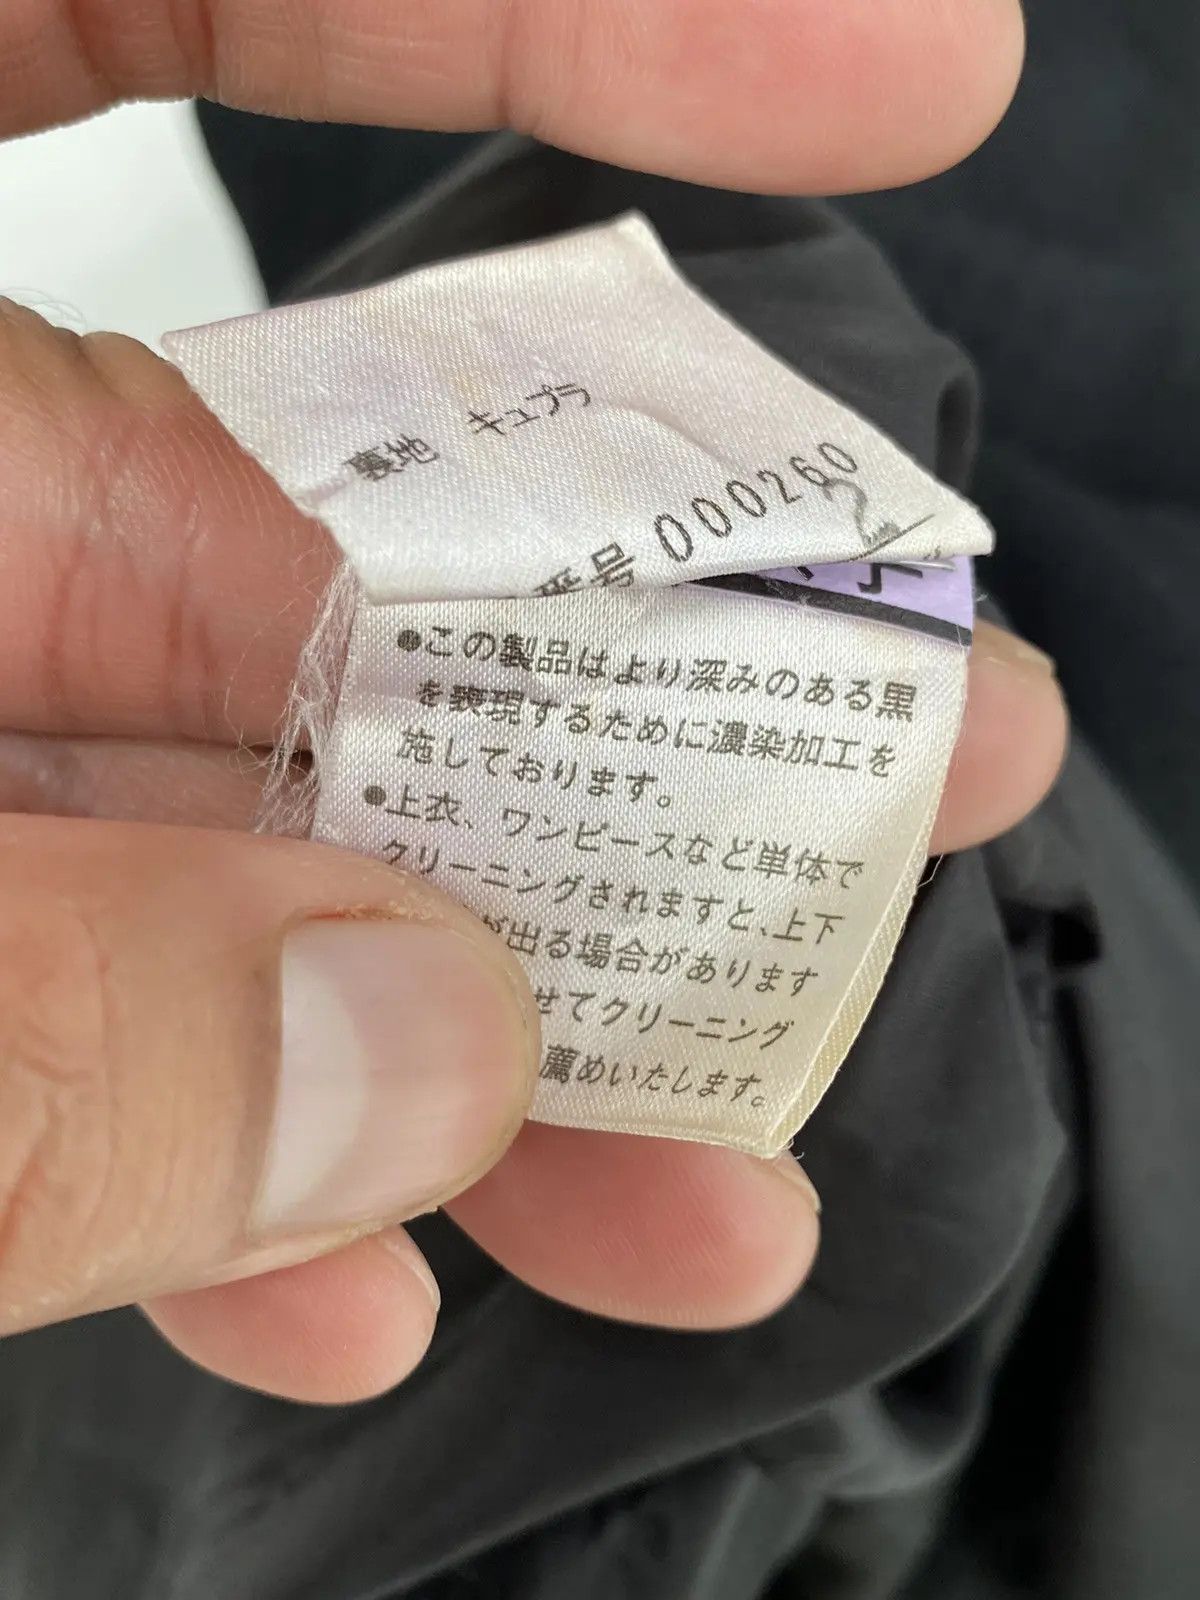 裏地 キュプラ
番号 000260
●この製品はより深みのある黒
を表現するために濃染加工を
施しております。
●上衣、ワンピースなど単体で
クリーニングされますと、上下
が出る場合があります
せてクリーニング
薦めいたします。